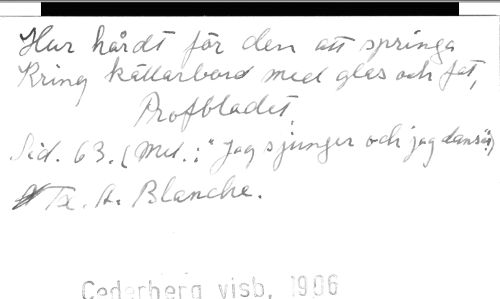 Hur hårdt för den att springa
Kring källarbord med glas och fat,
Profbladet.
Sid. 63. (Mel.: "Jag sjunger och jag dansar")
Tx. A. Blanche.
Cederberg visb, 1906